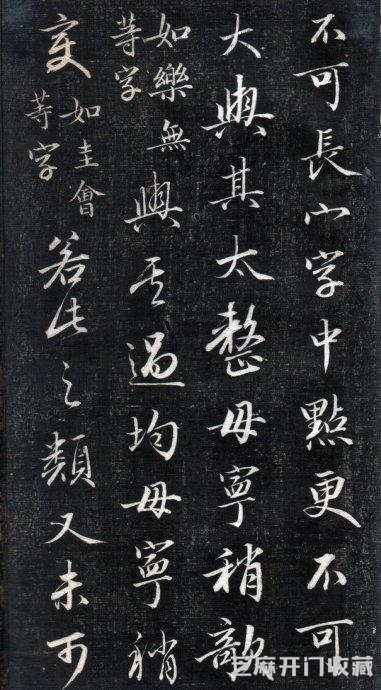 不可長宀字中點更不可
大與其太整毋寧稍欹
如樂無
等字
與其過均毋寧稍
變
如圭會
等字
若此之類又未可
芝麻开门收藏